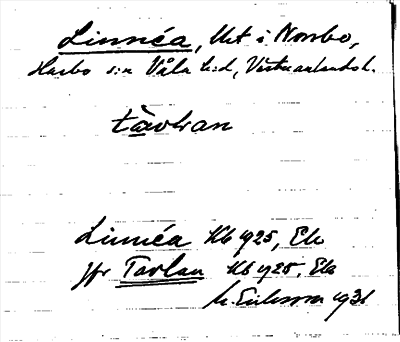 Linnéa, lht i Norrbo,
Harbo s:n Våla h:d, Västmanlands l.
tàvlran
Linnéa Kb 1925, Ek
jfr Tavlan Kb 1925, Ek
M. Eriksson 1931